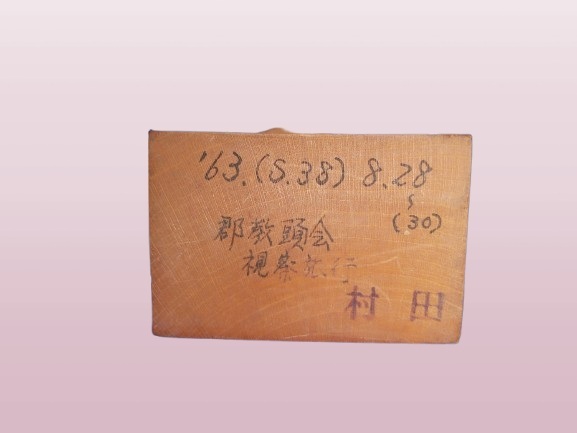 '63.(S.38) 8.28
~
(30)
郡教頭会
視察旅行
村田